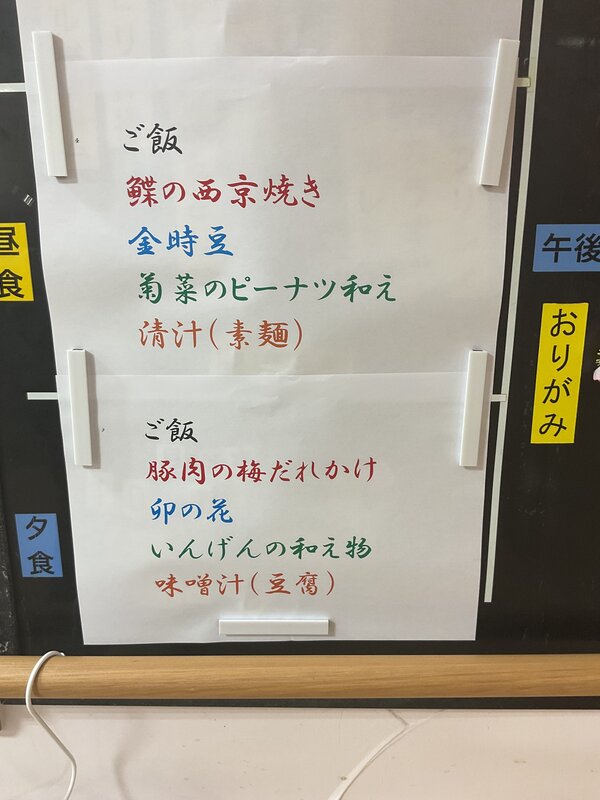 昼食
ご飯
鰈の西京焼き
金時豆
菊菜のピーナツ和え
清汁(素麺)
夕食
ご飯
豚肉の梅だれかけ
卯の花
いんげんの和え物
味噌汁(豆腐)
午後
おりがみ